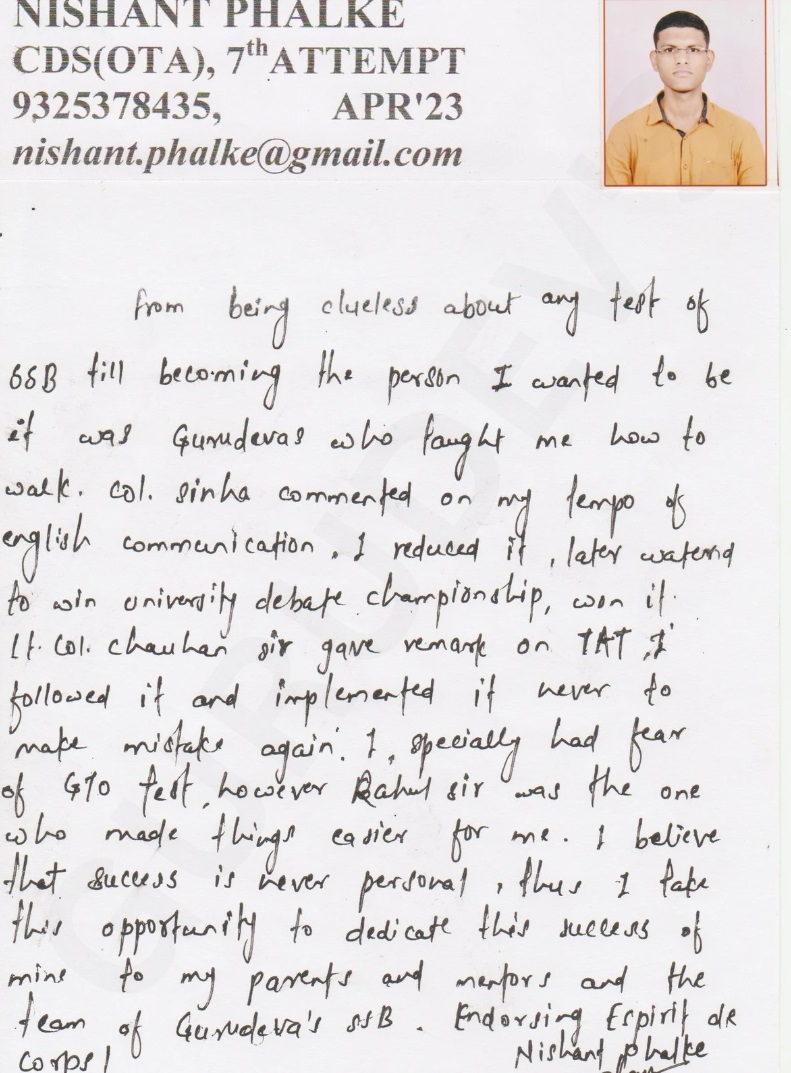 NISHANT PHALKE
CDS(OTA), 7th ATTEMPT
9325378435, APR'23
nishant.phalke@gmail.com
from being clueless about any test of
SSB till becoming the person I wanted to be
it was Gurudevas who taught me how to
walk. Col. Sinha commented on my tempo of
english communication, I reduced it, later
to win university debate championship, won it.
Lt. Col. Chauhan sir gave remark on TAT, I
followed it and implemented it never to
make mistake again. I, specially had fear
of GTO test, however Rahul sir was the one
who made things easier for me. I believe
that success is never personal, thus I take
this opportunity to dedicate this success of
mine to my parents and mentors and the
team of Gurudeva's SSB. Endorsing Espirit de
Corps!
Nishant Phalke
GURUDEV